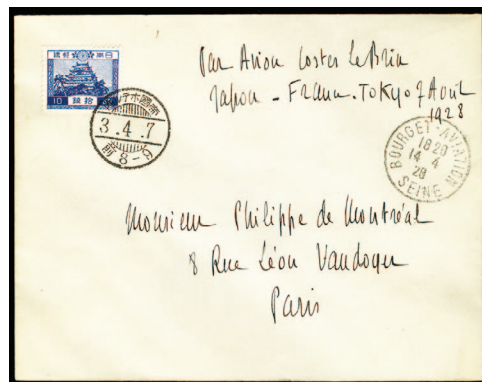 日本郵便
10 拾錢
Par Avion Costes Le Brix
Japon - France. Tokyo 7 Avril
1928
3.4.7
前8-9
BOURGET-AVIATION
1820
14 4
28
SEINE
Monsieur Philippe de Montréal
8 Rue Léon Vaudoyer
Paris